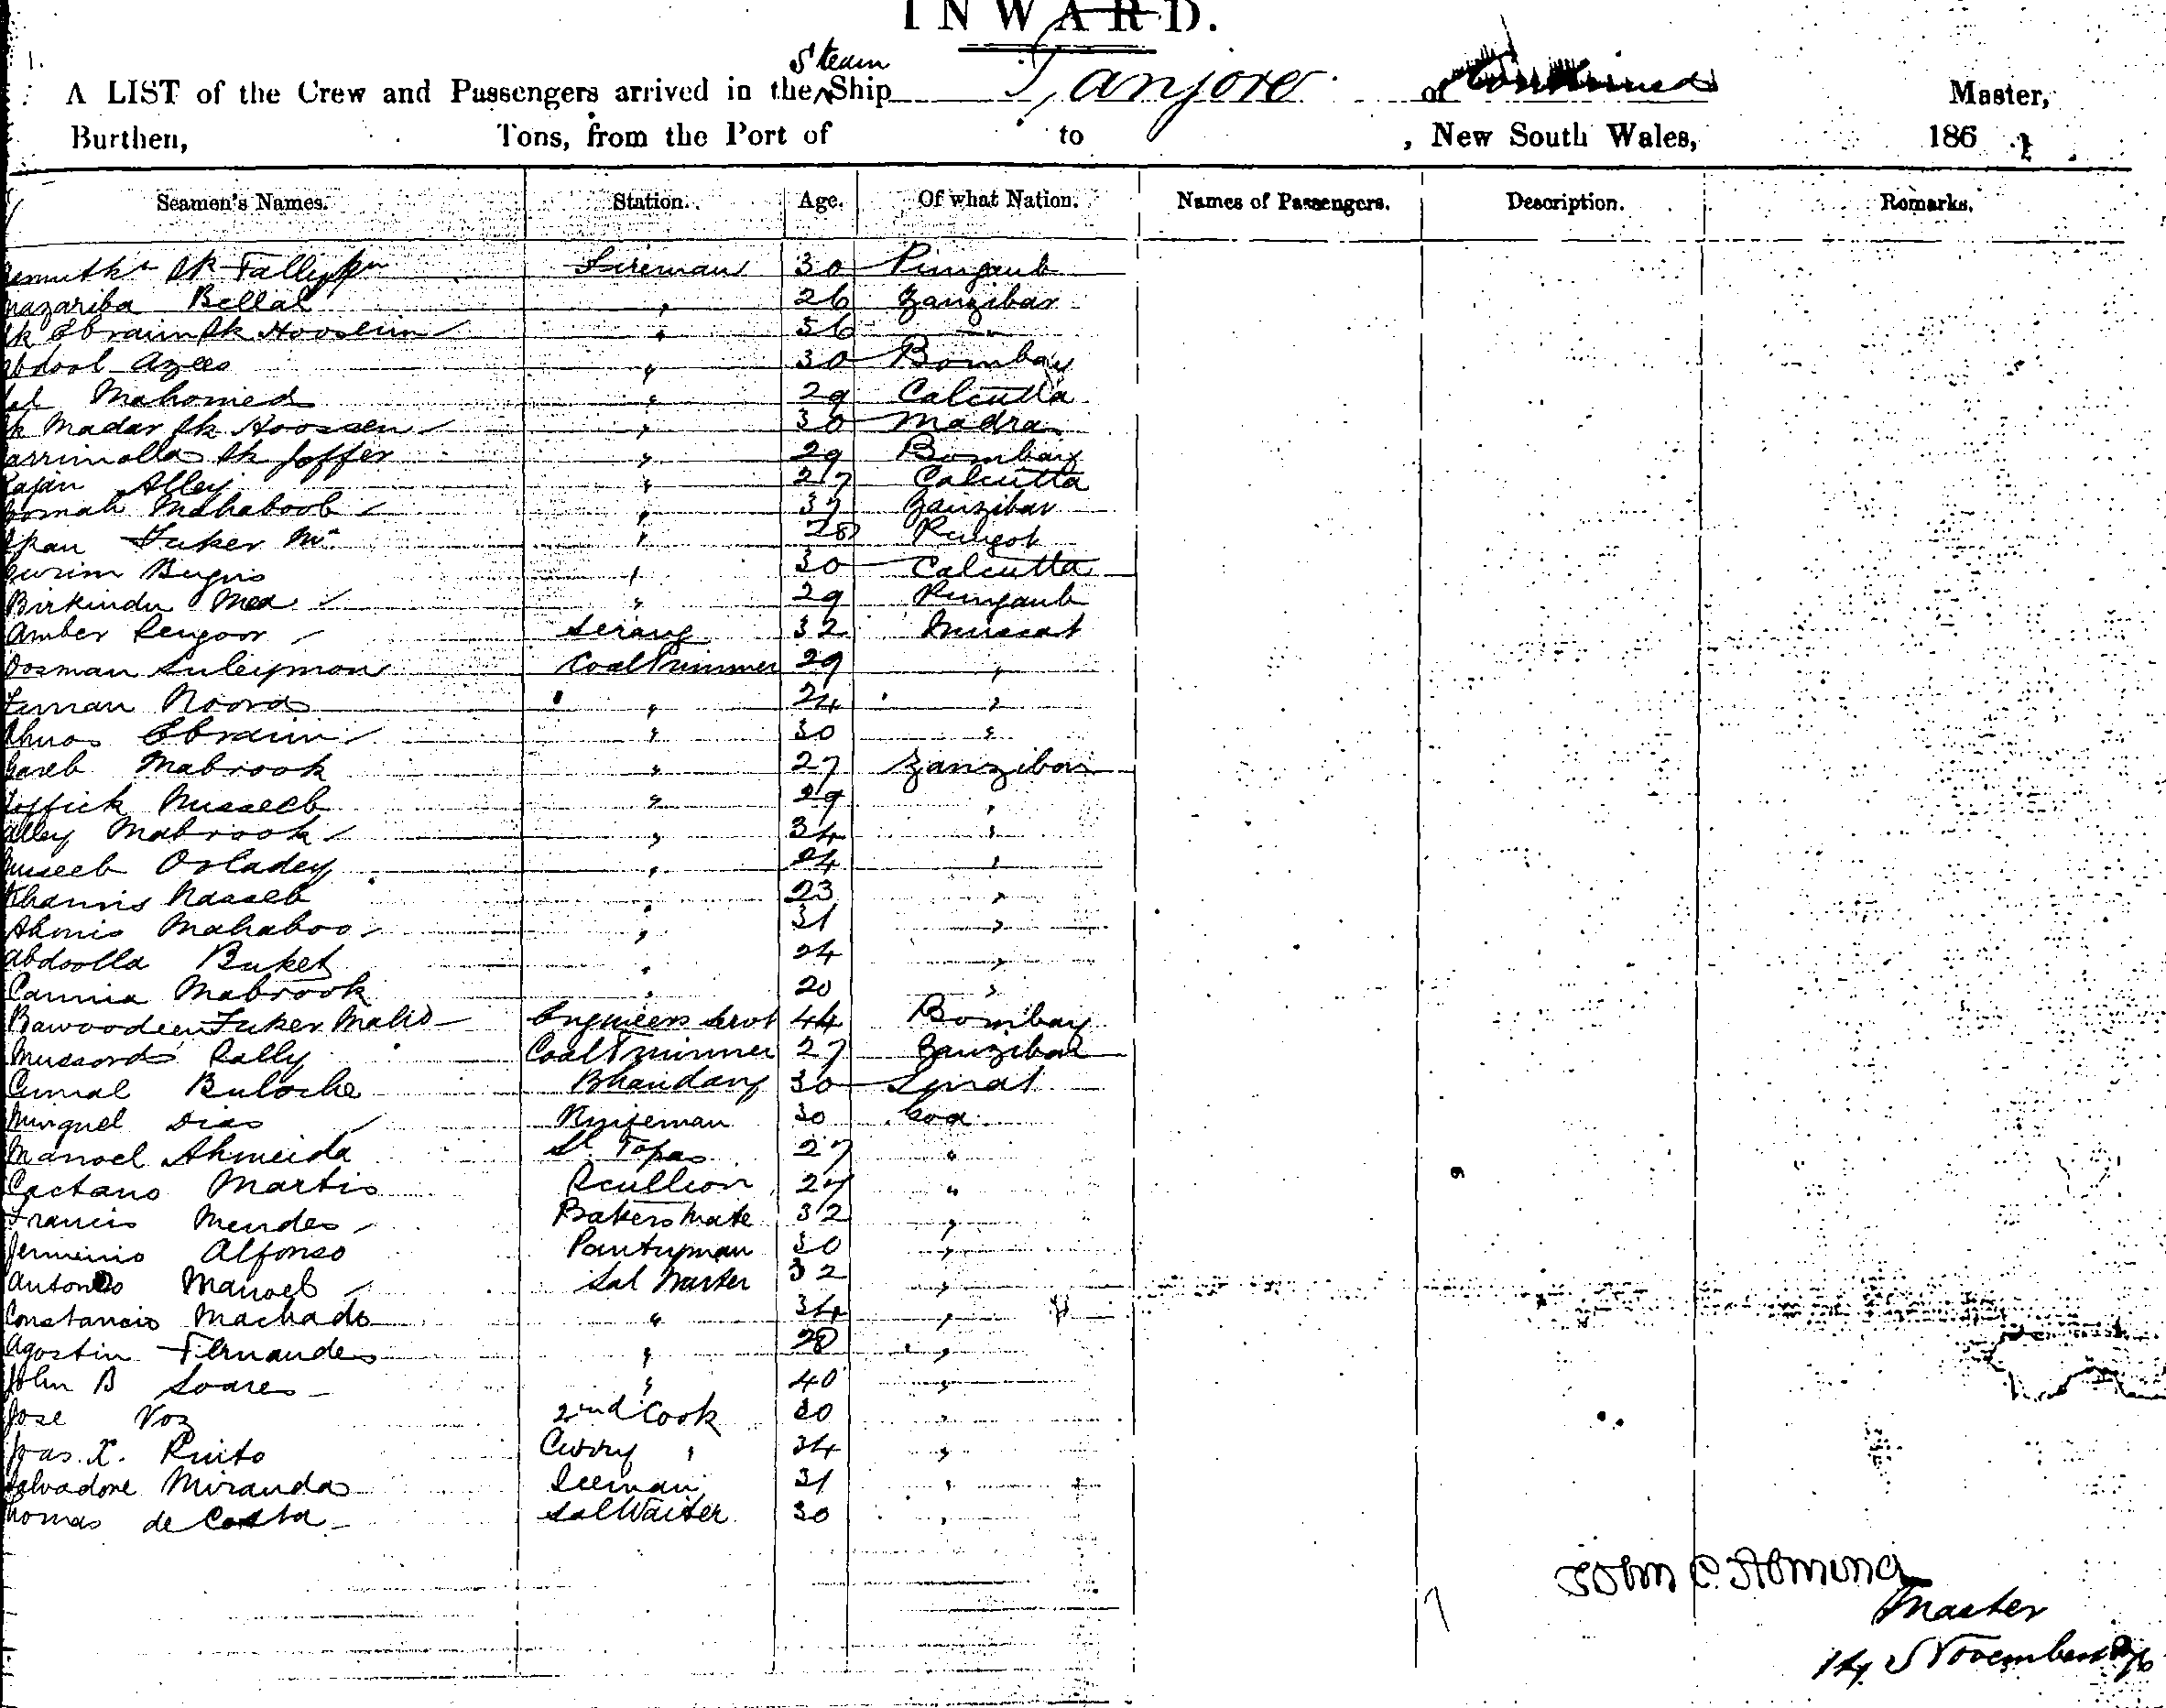 INWARD.
A LIST of the Crew and Passengers arrived in the Steam Ship Tanjore of Continued Master,
Burthen, Tons, from the Port of to , New South Wales, 186
Seamen's Names. Station. Age. Of what Nation. Names of Passengers. Description. Remarks.
Sk Fireman 30 Punjaub
Bellal " 26 Zanzibar
Sk Ebraim Sk Hooslim " 36 "
Abdool Azees " 30 Bombay
Mahomed " 29 Calcutta
Sk Madar Sk Hoossen " 30 Madras
Sk Joffer " 29 Bombay
Alley " 27 Calcutta
Mahaboob " 37 Zanzibar
Fuker " 28
" 30 Calcutta
Birkindu Mea " 29 Punjaub
Amber Rengoor Serang 32 Muscat
Oosman Suleymon Coal Trimmer 29 "
Noord " 24 "
Ebraim " 30 "
Mabrook " 27 Zanzibar
Nusseeb " 29 "
Alley Mabrook " 34 "
Nuseeb " 24 "
Khamis Nasseb " 23 "
Mahaboo " 31 "
Abdoolla Buket " 24 "
Mabrook " 20 "
Bawoodeen Fuker Engineers Servt 44 Bombay
Rally Coal Trimmer 27 Zanzibar
Buloche Bhandary 30 Surat
Minguel Dias Knifeman 30 Goa
Manoel Ahmeida Topas 27 "
Caetano Martis Scullion 27 "
Francis Mendes Bakers Mate 32 "
Jerminio Alfonso Pantryman 30 "
Antonio Manoel Sal Waiter 32 "
Constancio Machado " 34 "
Agostin Fernandes " 28 "
John B Soares " 40 "
Jose Voz 2nd Cook 30 "
X. Pinto Curry " 34 "
Salvadore Miranda Iceman 31 "
Thomas de Costa Sal Waiter 30 "
John C. Fleming
Master
14 November